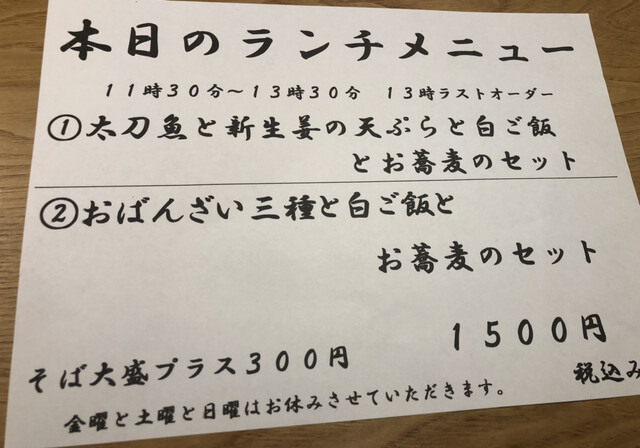 本日のランチメニュー
11時30分～13時30分　13時ラストオーダー
①太刀魚と新生姜の天ぷらと白ご飯
とお蕎麦のセット
②おばんざい三種と白ご飯と
お蕎麦のセット
1500円
そば大盛プラス300円
税込み
金曜と土曜と日曜はお休みさせていただきます。